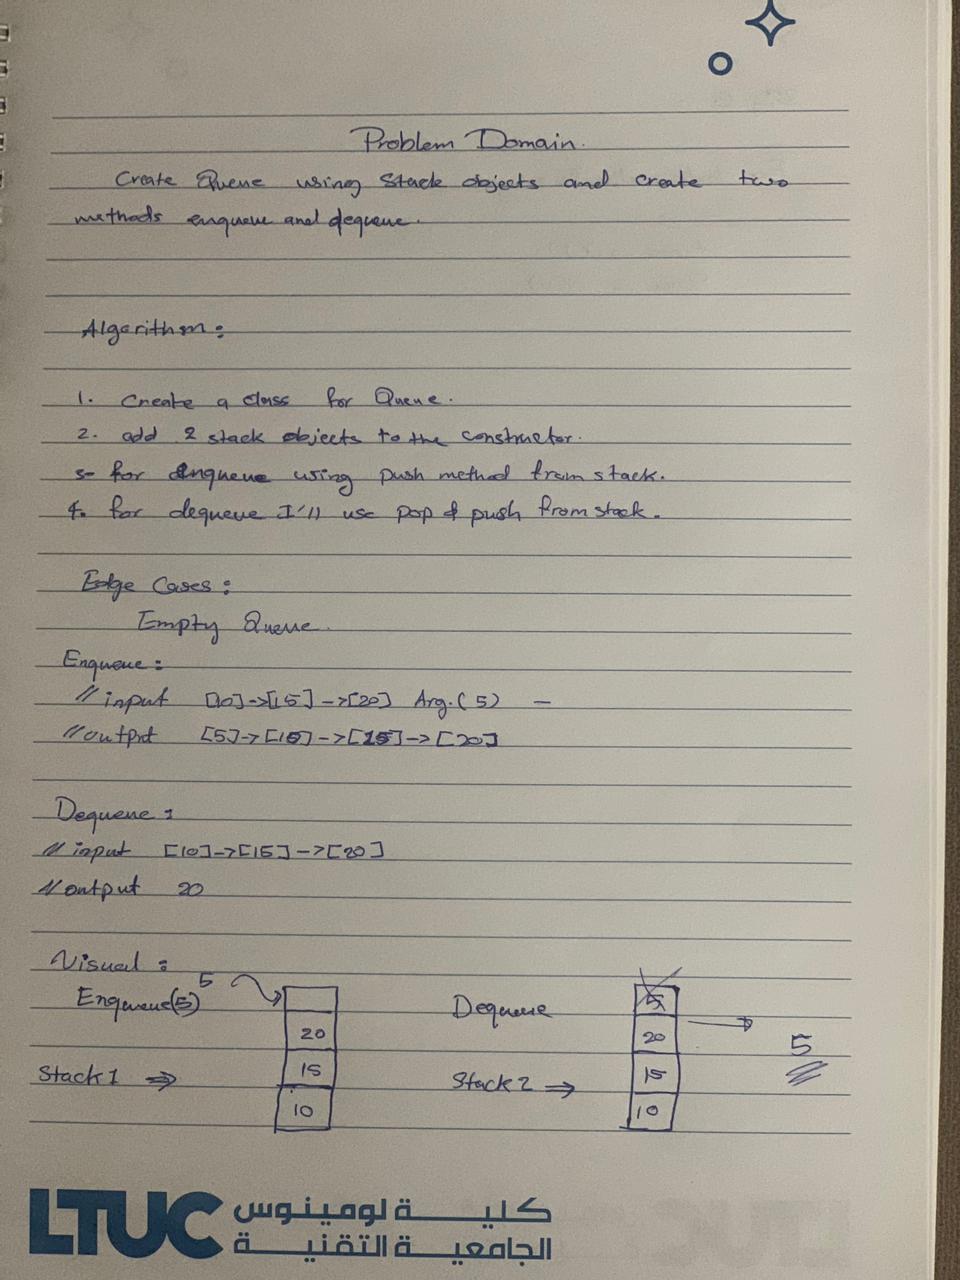 Problem Domain.
Create Queue using Stack objects and create two
methods enqueue and dequeue.
Algorithm:
1. Create a class for Queue.
2. add 2 stack objects to the constructor.
3- for enqueue using push method from stack.
4. for dequeue I'll use pop & push from stack.
Edge Cases:
Empty Queue.
Enqueue:
// input [10]->[15]->[20] Arg.(5) —
// output [5]->[10]->[15]->[20]
Dequeue:
// input [10]->[15]->[20]
// output 20
Visual:
Enqueue(5) 5
Dequeue
5
20
20
5
Stack1 ⇒
15
Stack2 →
15
10
10
LTUC
كلية لومينوس
الجامعية التقنية